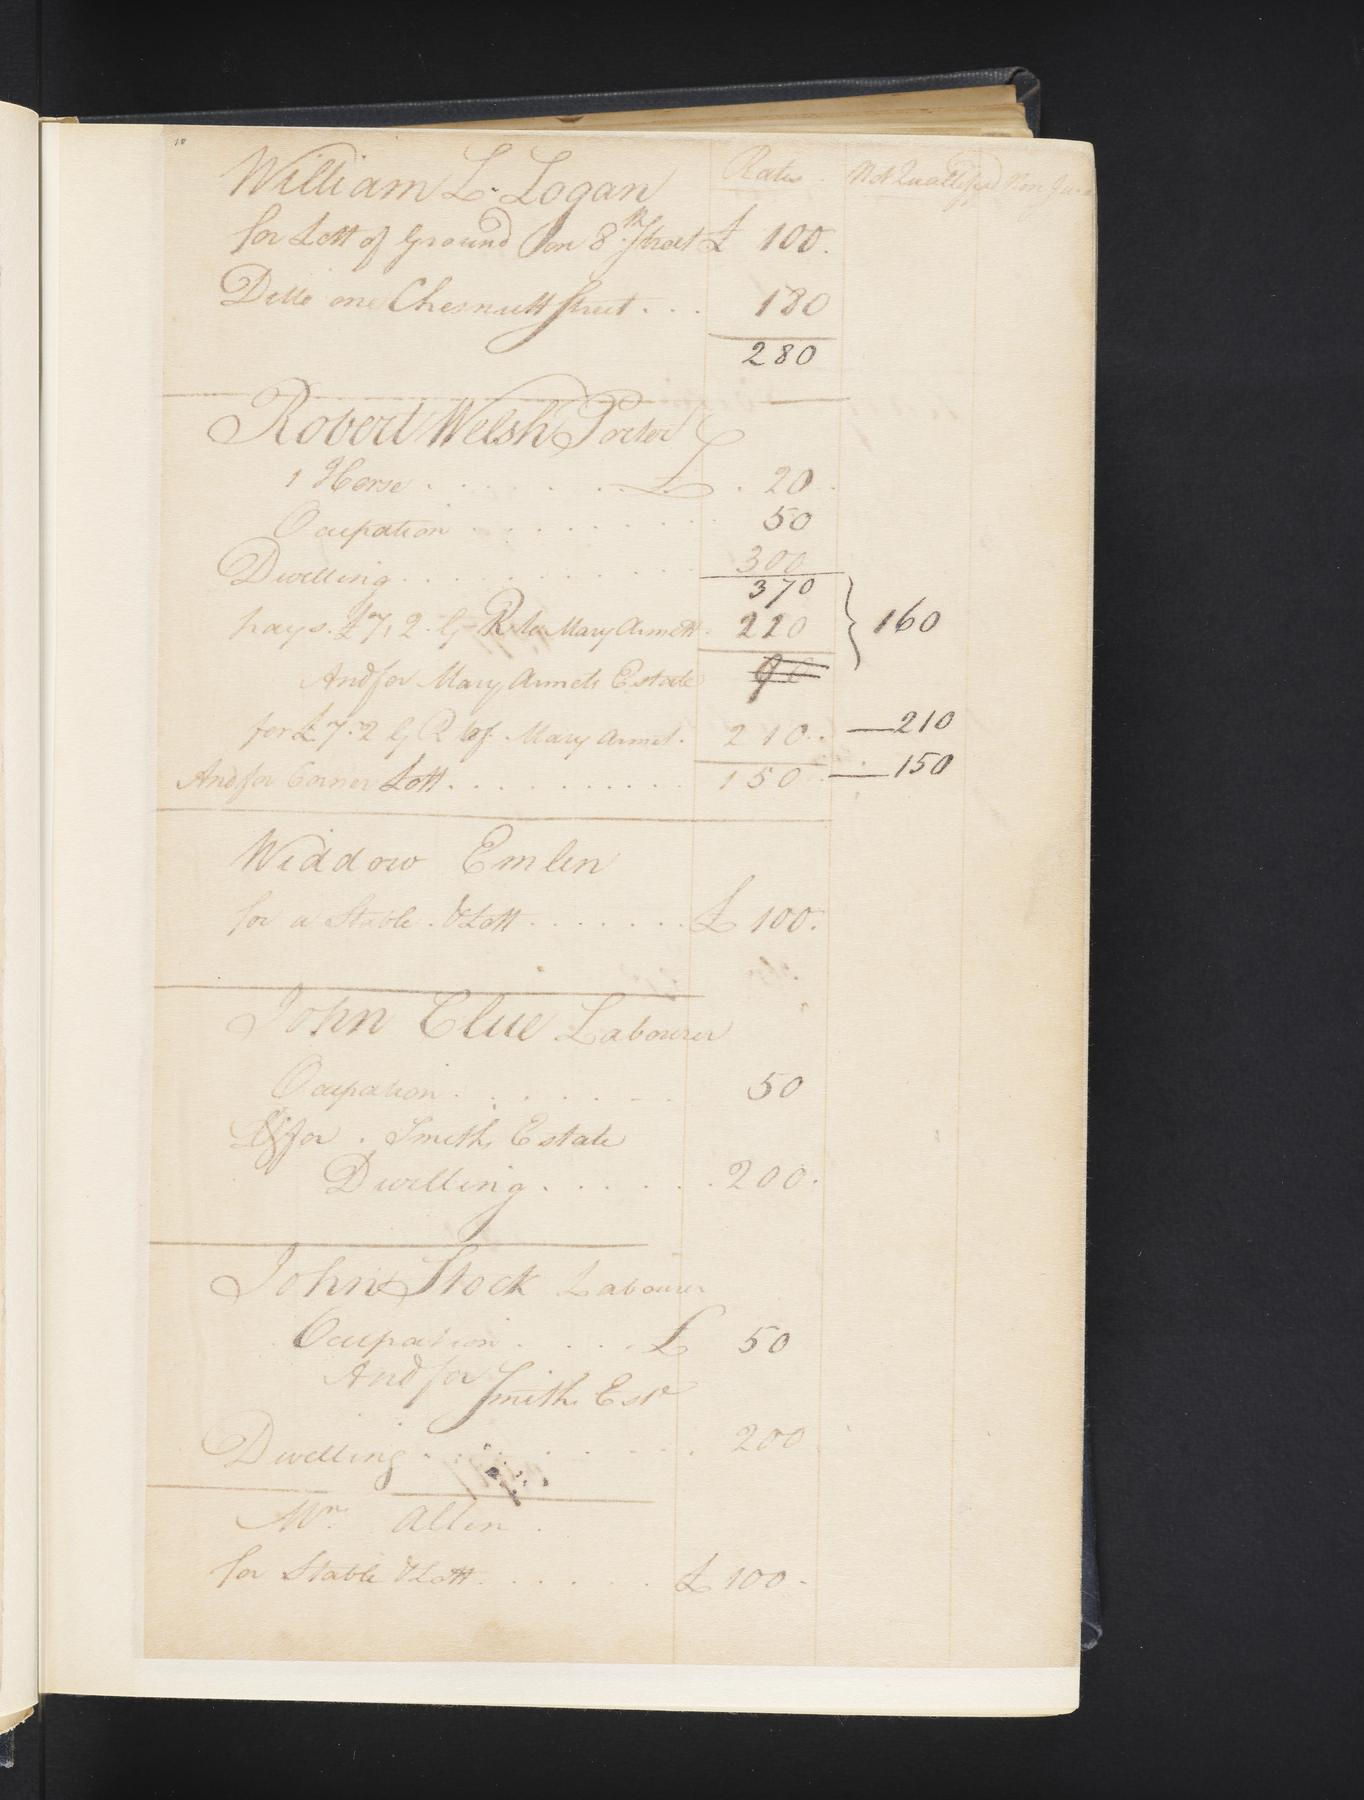 10
Rates. Not Quallifyed Non Jura
William L. Logan
for Lott of Ground on 8th Street £ 100.
Ditto one Chesnutt Street . . . 180
280
Robert Welsh Porter
1 Horse . . . . . . . £ . 20
Ocupation . . . . . . . . 50
Dwelling . . . . . . . . . . . 300
370
pays. £7,2. G R to Mary Armett. 220 } 160
90
And for Mary Armets Estate
for £7.2 G R of Mary Armet. 210. . —210
And for Corner Lott . . . . . . . . . . 150 —150
Widdow Emlen
for a Stable . & Lott . . . . . . . £ 100.
John Clue Labourer
Ocupation . . . . . . . 50
& for . Smiths Estate
Dwelling . . . . . . 200.
John Stock Labourer
Ocupation . . . . £ 50
And for
Smiths Estr
Dwelling . . . . . . . . . 200
Wm. Allen .
for Stable & Lott . . . . . . £ 100.